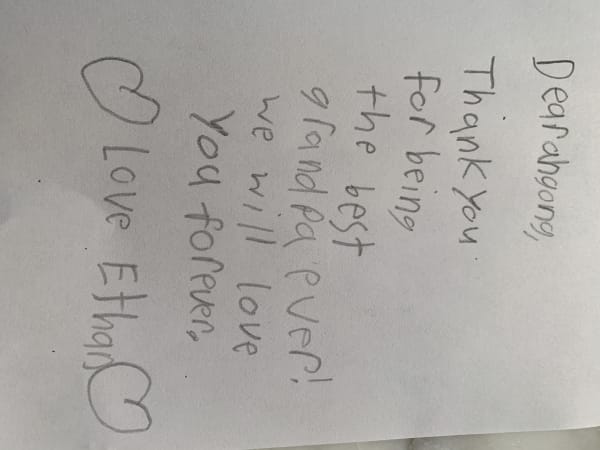 Dear ahgong,
Thank you
for being
the best
grandpa ever!
we will love
you forever.
Love Ethan